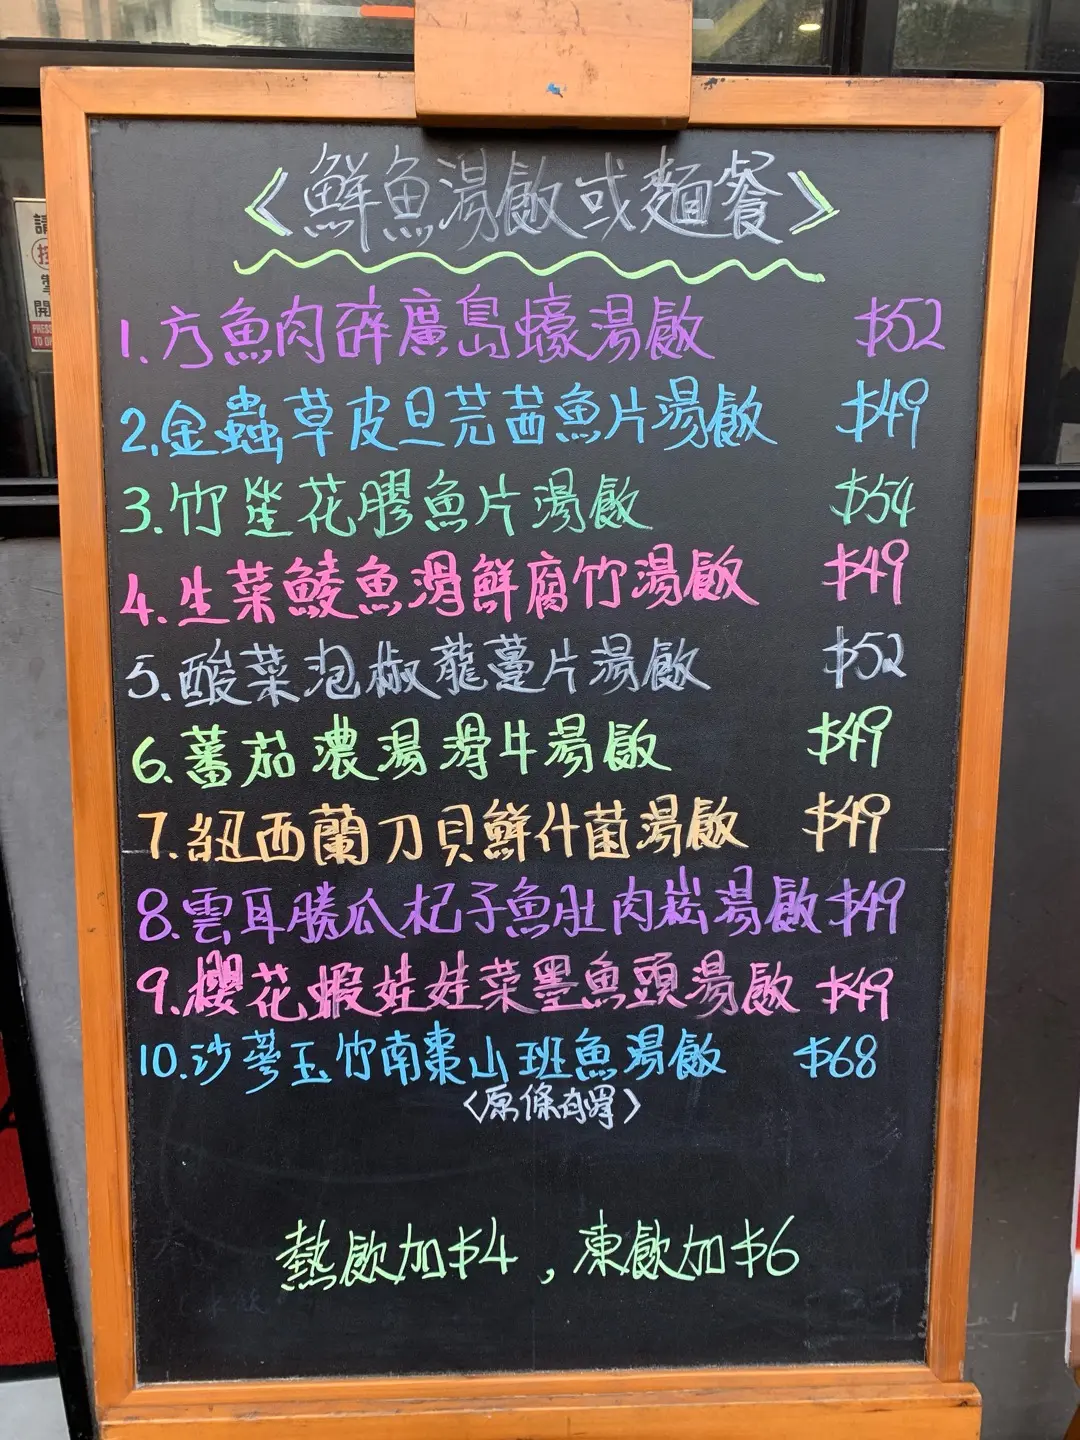 《鮮魚湯飯或麵餐》
1.方魚肉碎廣島蠔湯飯 $52
2.金蟲草皮旦芫茜魚片湯飯 $49
3.竹笙花膠魚片湯飯 $54
4.生菜鯪魚滑鮮腐竹湯飯 $49
5.酸菜泡椒龍躉片湯飯 $52
6.蕃茄濃湯滑牛湯飯 $49
7.紐西蘭刀貝鮮什菌湯飯 $49
8.雲耳勝瓜杞子魚肚肉崧湯飯 $49
9.櫻花蝦娃娃菜墨魚頭湯飯 $49
10.沙蔘玉竹南棗山班魚湯飯 $68
〈原條〉
熱飲加$4，凍飲加$6
請
按
掣
開
PRESS